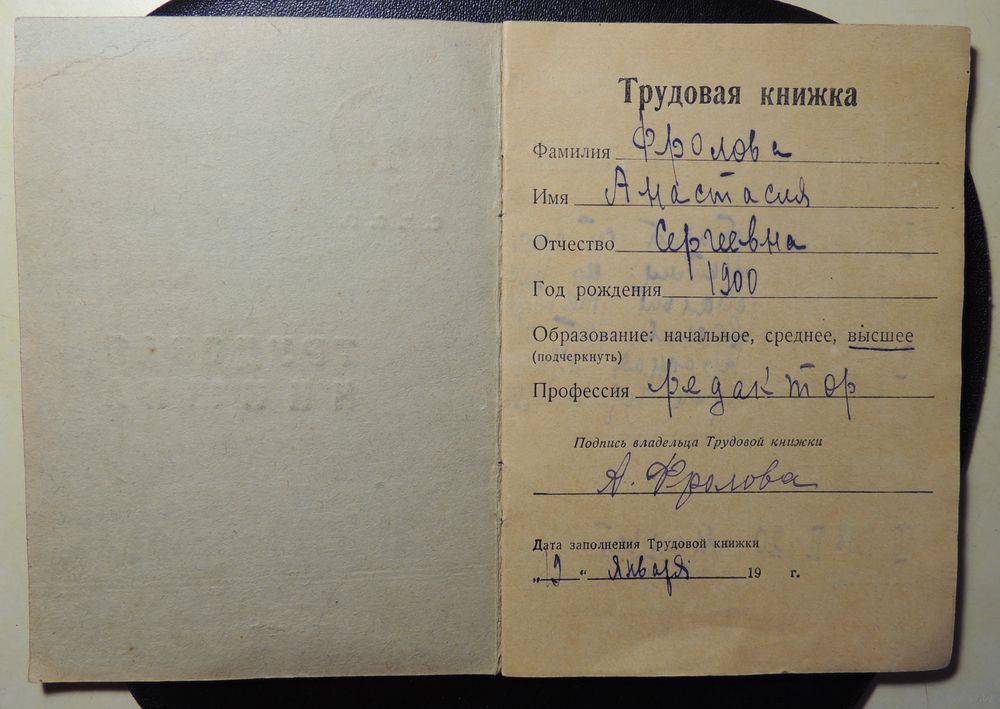 Трудовая книжка
Фамилия Фролова
Имя Анастасия
Отчество Сергеевна
Год рождения 1900
Образование: начальное, среднее, высшее
(подчеркнуть)
Профессия редактор
Подпись владельца Трудовой книжки
А. Фролова
Дата заполнения Трудовой книжки
„19“ января 19 г.